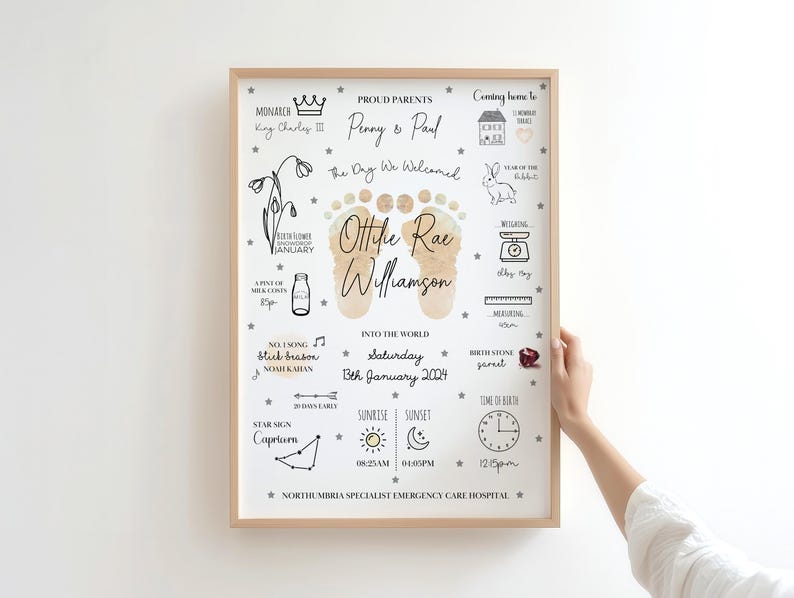 MONARCH
King Charles III
PROUD PARENTS
Penny & Paul
Coming home to
13 MOWBRAY
TERRACE
The Day We Welcomed
YEAR OF THE
Rabbit
BIRTH FLOWER
SNOWDROP
JANUARY
Ottilie Rae
Williamson
WEIGHING
6lbs 13oz
A PINT OF
MILK COSTS
85p
MILK
MEASURING
45cm
INTO THE WORLD
Saturday
13th January 2024
NO. 1 SONG
Stick Season
NOAH KAHAN
BIRTH STONE
garnet
20 DAYS EARLY
STAR SIGN
Capricorn
SUNRISE
08:25AM
SUNSET
04:05PM
TIME OF BIRTH
12:15pm
NORTHUMBRIA SPECIALIST EMERGENCY CARE HOSPITAL